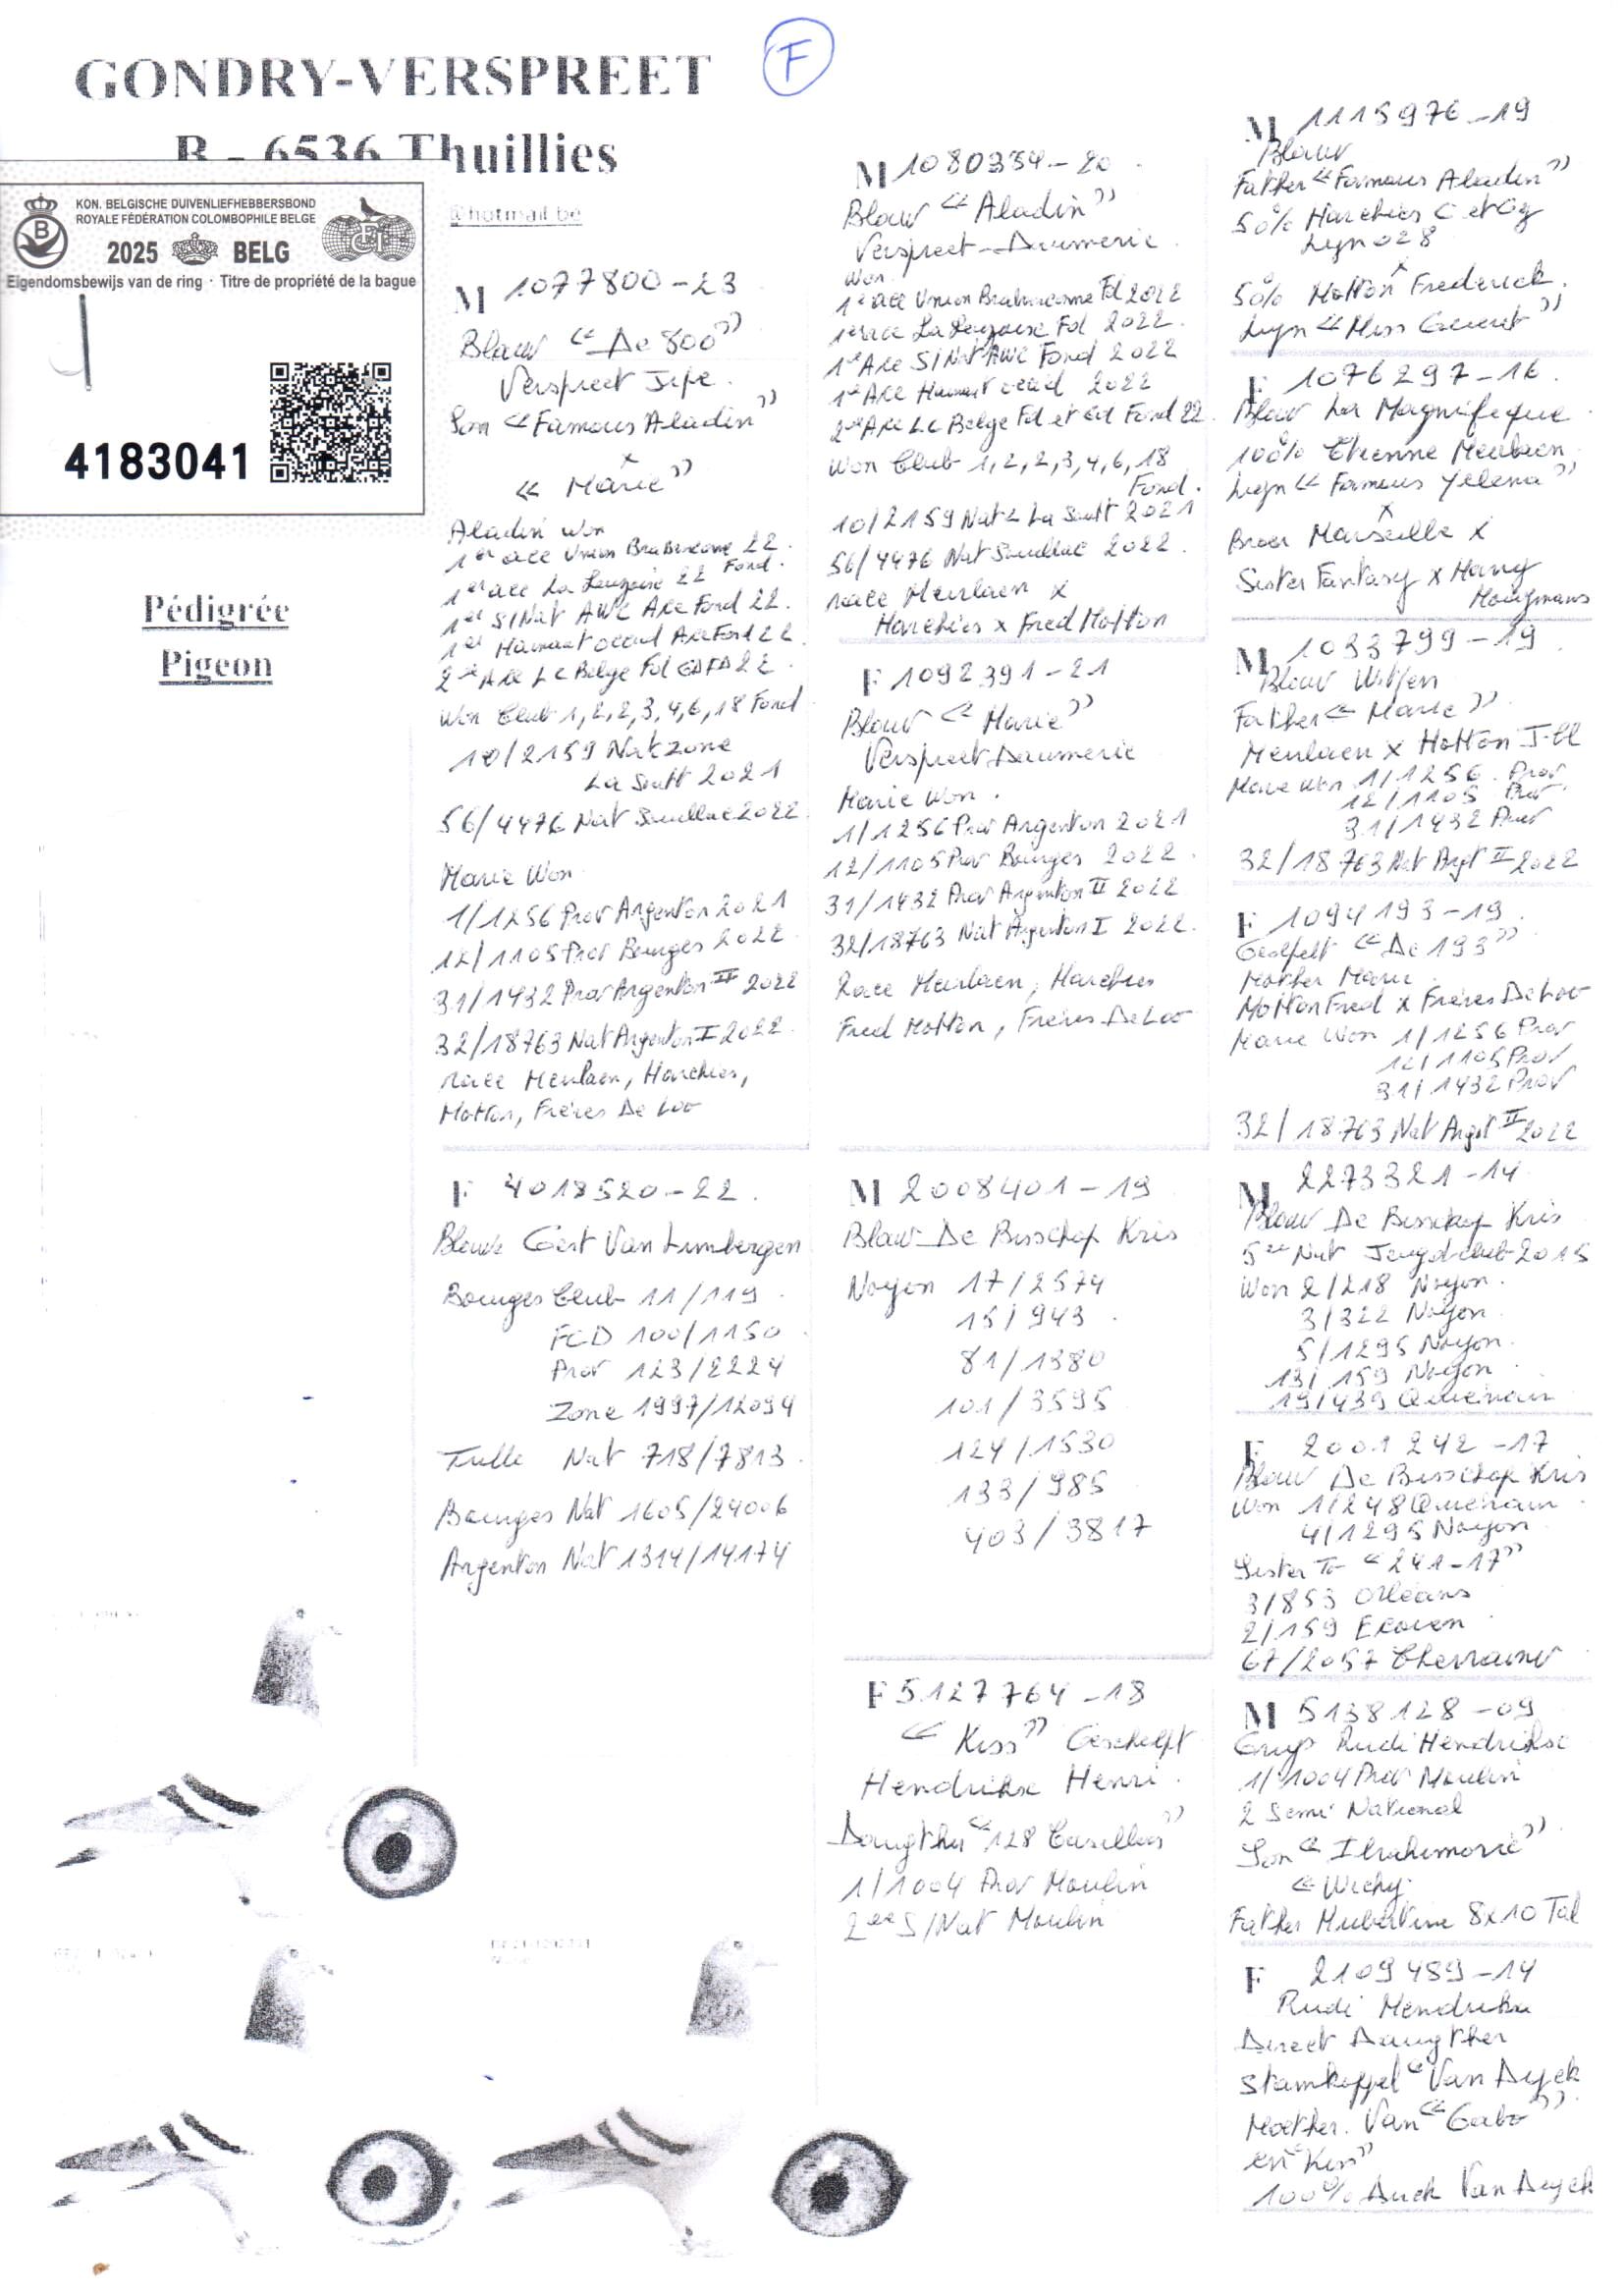 F
GONDRY-VERSPREET
B - 6536 Thuillies
@hotmail.be
KON. BELGISCHE DUIVENLIEFHEBBERSBOND
ROYALE FÉDÉRATION COLOMBOPHILE BELGE
2025 BELG
Eigendomsbewijs van de ring · Titre de propriété de la bague
4183041
Pédigrée
Pigeon
M 1077800-23
Blauw "De 800"
Verspreet Jipe.
Son "Famous Aladin"
x
"Marie"
Aladin Won
1er ace Union Brabanconne 22.
1er ace La Louzoise 22 Fond.
1er S/Nat AWC Ace Fond 22.
1er Hainaut occid Ace Fond 22
2de Ace LC Belge Fd GDFD 22.
Won Club 1,2,2,3,4,6,18 Fond
10/2159 Nat zone
La Soutt 2021
56/4476 Nat Souillac 2022
Marie Won
1/1256 Prov Argenton 2021
12/1105 Prov Bourges 2022
31/1432 Prov Argenton II 2022
32/18763 Nat Argenton I 2022
race Meulaen, Harchies,
Motton, Frères De Loo
F 4018520-22.
Blauw Geert Van Limbergen
Bourges Club 11/119.
FCD 100/1150
Prov 123/2224
Zone 1997/12094
Tulle Nat 718/7813
Bourges Nat 1605/24006
Argenton Nat 1314/14174
M 1080334-20
Blauw "Aladin"
Verspreet-Daumerie
Won
1er ace Union Brabanconne Fd 2022
1er ace La Louzoise Fd 2022
1er Ace S/Nat AWC Fond 2022
1er Ace Hainaut occid 2022
2de Ace LC Belge Fd et Gd Fond 22
Won Club 1,2,2,3,4,6,18
Fond.
10/2159 Nat La Soutt 2021
56/4476 Nat Souillac 2022
race Meulaen x
Harchies x Fred Motton
F 1092391-21
Blauw "Marie"
Verspreet Daumerie
Marie Won.
1/1256 Prov Argenton 2021
12/1105 Prov Bourges 2022
31/1432 Prov Argenton II 2022
32/18763 Nat Argenton I 2022.
Race Meulaen, Harchies
Fred Motton, Frères De Loo
M 2008401-19
Blauw De Bisschop Kris
Noyon 17/2574
15/943
81/1380
101/3595
124/1530
133/985
403/3817
F 5127764-18
"Kiss" Geschelpt
Hendrikx Henri.
Daugther "128 Casillas"
1/1004 Prov Moulin
2de S/Nat Moulin
M 1115976-19
Blauw
Father "Famous Aladin"
50% Harchies C et Gy
Lyn 028
x
50% Motton Frederick.
Lyn "Miss Gueret"
F 1076297-16
Blauw La Magnifique
100% Etienne Meulaen
Lyn "Famous Yelena"
x
Broer Marseille x
Sister Fantasy x Hang
M 1033799-19
Blauw Witpen
Father "Marie"
Meulaen x Hotton J-Cl
Marie Won 1/1256 Prov
12/1105 Prov
31/1432 Prov
32/18763 Nat Argt II 2022
F 1094193-19
Geschelpt "De 193"
Mother Marie
Motton Fred x Frères De Loo
Marie Won 1/1256 Prov
12/1105 Prov
31/1432 Prov
32/18763 Nat Argt II 2022
M 2273321-14
Blauw De Bisschop Kris
5de Nat Jeugdclub 2015
Won 2/218 Noyon.
3/322 Noyon.
5/1295 Noyon.
13/159 Noyon
19/439 Quievrain
F 2001242-17
Blauw De Bisschop Kris
Won 1/248 Quievrain
4/1295 Noyon
Sister To "241-17"
3/853 Orleans
2/159 Ecouen
67/2057
M 5138128-09
Rudi Hendrikx
1/1004 Prov Moulin
2 Semi National
Son "Ibrahimovic"
"Wichy"
Father Hubertine 8x10 Tal
F 2109489-14
Rudi Hendrikx
Direct Daugther
Stamkoppel "Van Dyck
Mother. Van "Gabo"
en "Kim"
100% Dirck Van Dyck